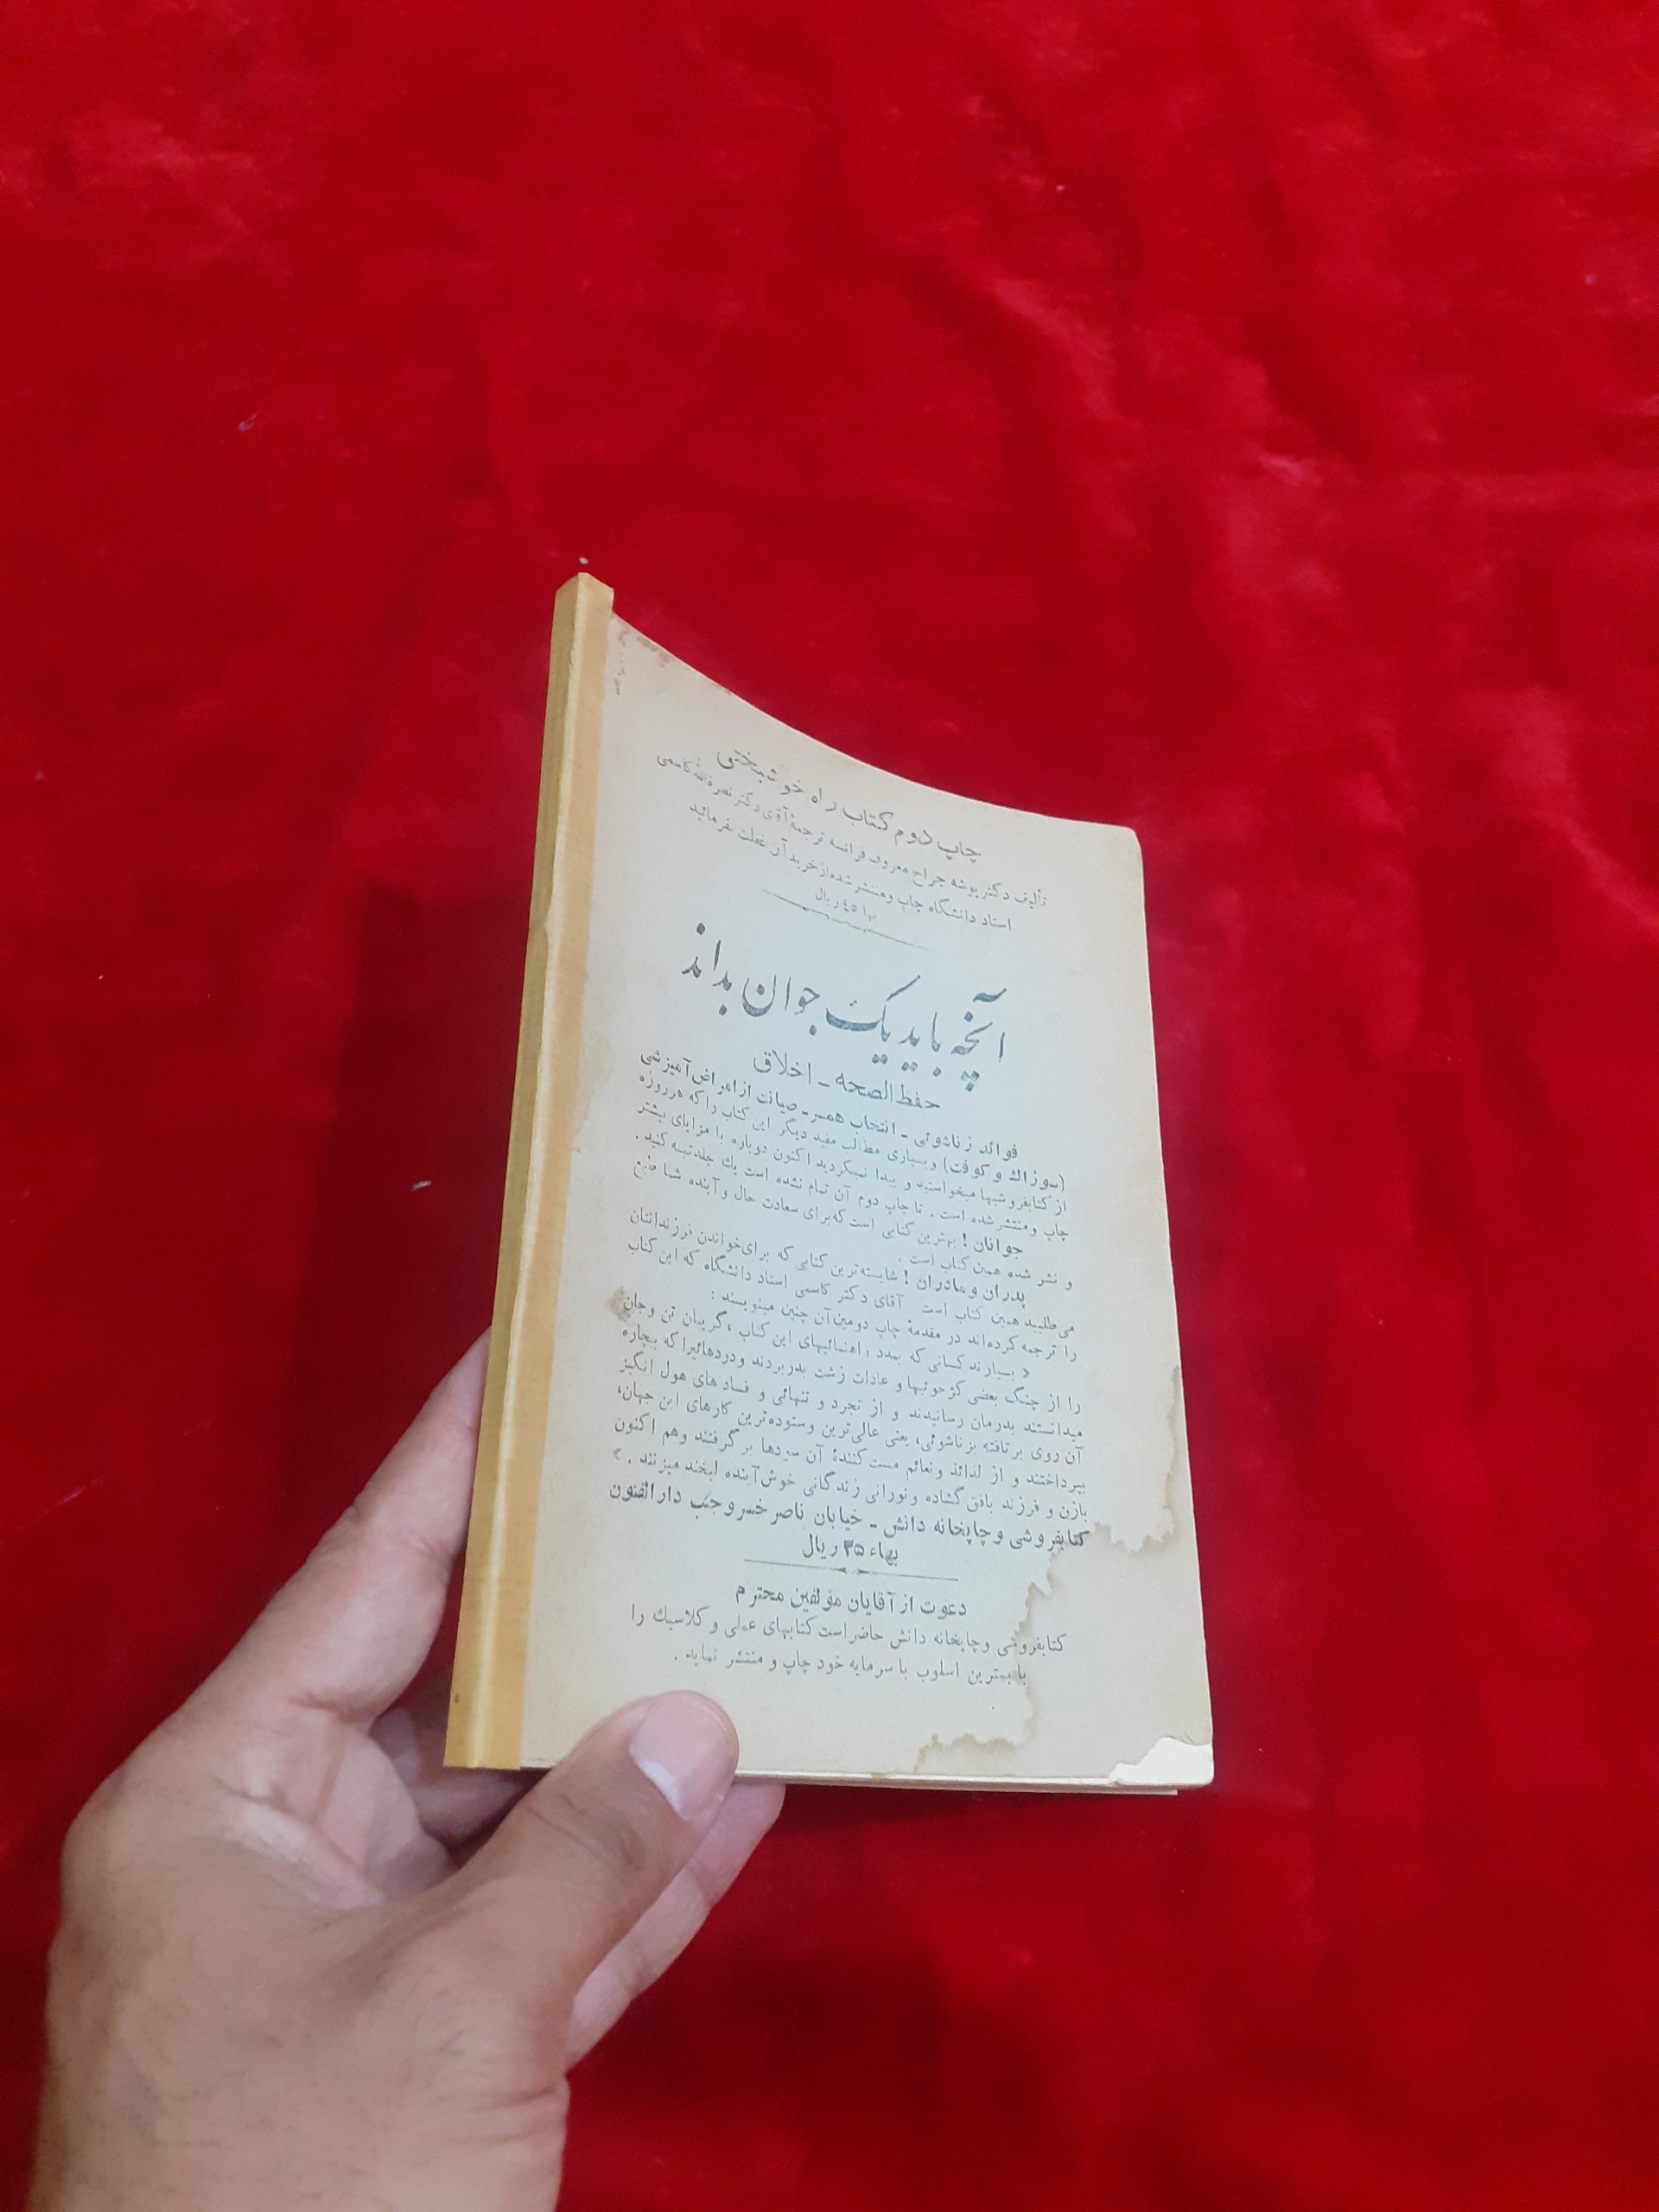 چاپ دوم کتاب راه خوشبختی
تألیف دکتر پوشه جراح معروف فرانسه ترجمهٔ آقای دکتر نصرةالله کاسمی
استاد دانشگاه چاپ و منتشر شده از خرید آن غفلت نفرمائید
بها ٤٥ ریال
آنچه باید یک جوان بداند
حفظ الصحه - اخلاق
فوائد زناشوئی - انتخاب همسر - صیانت از امراض آمیزشی
(سوزاك و کوفت) و بسیاری مطالب مفید دیگر این کتاب را که هرروزه
از کتابفروشیها میخواستید و پیدا نمیکردید اکنون دوباره با مزایای بیشتر
چاپ و منتشر شده است . تا چاپ دوم آن تمام نشده است یك جلد تهیه کنید .
جوانان ! بهترین کتابی است که برای سعادت حال و آینده شما طبع
و نشر شده همین کتاب است .
پدران و مادران ! شایسته ترین کتابی که برای خواندن فرزندانتان
می طلبید همین کتاب است آقای دکتر کاسمی استاد دانشگاه که این کتاب
را ترجمه کرده‌اند در مقدمهٔ چاپ دومین آن چنین مینویسند :
« بسیارند کسانی که بمدد راهنمائیهای این کتاب ، گریبان تن و جان
را از چنگ بعضی کژخوئیها و عادات زشت بدر بردند و دردهائیرا که بیچاره
میدانستند بدرمان رسانیدند و از تجرد و تنهائی و فساد های هول انگیز
آن روی برتافته بزناشوئی، یعنی عالی ترین و ستوده ترین کارهای این جهان،
بپرداختند و از لذائذ و نعائم مست کنندهٔ آن سودها برگرفتند و هم اکنون
بازن و فرزند بافق گشاده و نورانی زندگانی خوش آینده لبخند میزنند . »
کتابفروشی و چاپخانه دانش - خیابان ناصر خسرو جنب دارالفنون
بهاء ۳۵ ریال
دعوت از آقایان مؤلفین محترم
کتابفروشی و چاپخانه دانش حاضر است کتابهای علمی و کلاسیك را
با بهترین اسلوب با سرمایه خود چاپ و منتشر نماید .